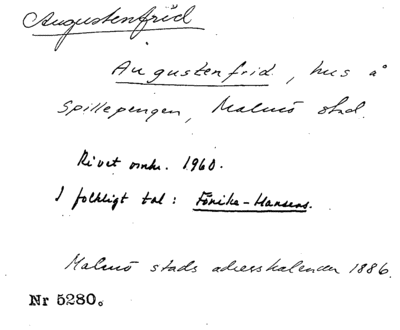 Augustenfrid
Augustenfrid, hus å
Spillepengen, Malmö stad.
Rivet omkr. 1960.
I folkligt tal: Fönike-Hansens.
Malmö stads adresskalender 1886.
Nr 5280.